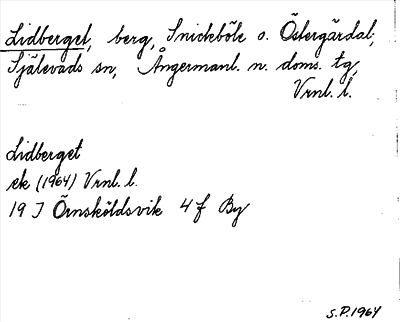 Lidberget, berg, Snickböle o. Östergärdal,
Själevads sn, Ångermanl. n. doms. tg,
Vrnl. l.
Lidberget
ek (1964) Vrnl. l.
19 J Örnsköldsvik 4 f By
S.P. 1964